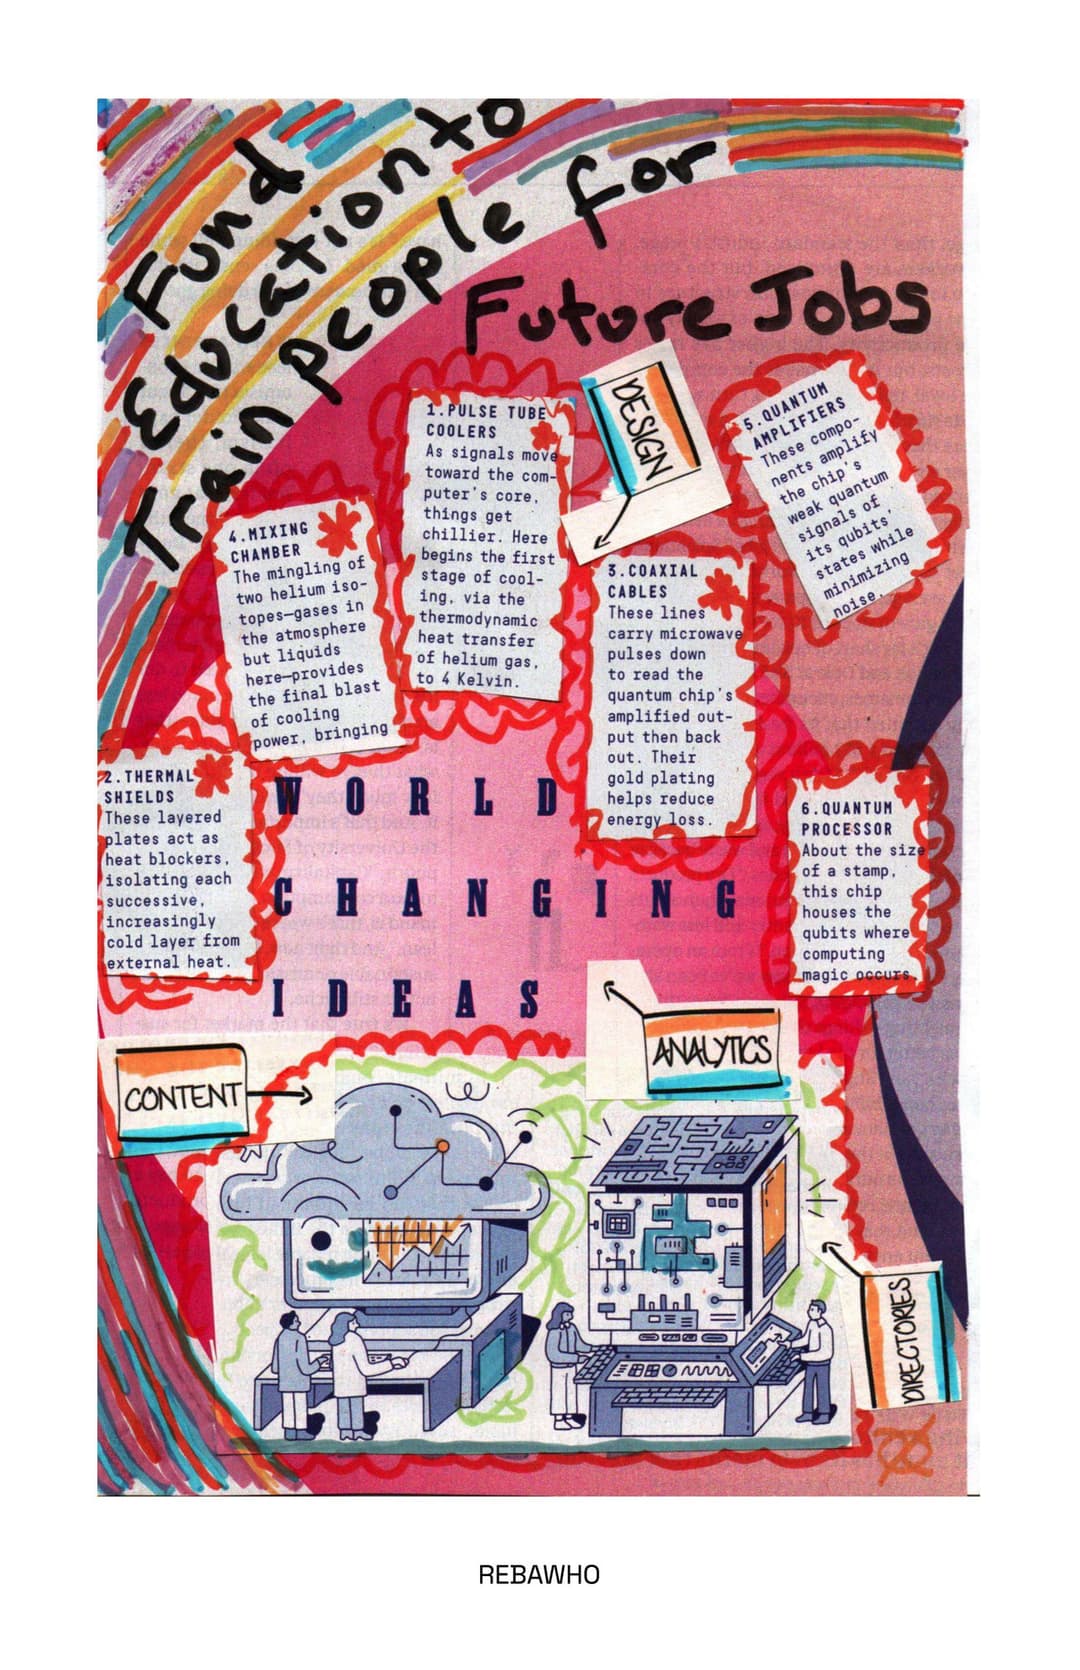 Fund
Education to
Train people for
Future Jobs
DESIGN
1.PULSE TUBE
COOLERS
As signals move
toward the com-
puter's core,
things get
chillier. Here
begins the first
stage of cool-
ing, via the
thermodynamic
heat transfer
of helium gas,
to 4 Kelvin.
5.QUANTUM
AMPLIFIERS
These compo-
nents amplify
the chip's
weak quantum
signals of
its qubits'
states while
minimizing
noise.
4.MIXING
CHAMBER
The mingling of
two helium iso-
topes—gases in
the atmosphere
but liquids
here—provides
the final blast
of cooling
power, bringing
3.COAXIAL
CABLES
These lines
carry microwave
pulses down
to read the
quantum chip's
amplified out-
put then back
out. Their
gold plating
helps reduce
energy loss.
2.THERMAL
SHIELDS
These layered
plates act as
heat blockers,
isolating each
successive,
increasingly
cold layer from
external heat.
WORLD
CHANGING
IDEAS
6.QUANTUM
PROCESSOR
About the size
of a stamp,
this chip
houses the
qubits where
computing
magic occurs.
CONTENT
ANALYTICS
DIRECTORIES
REBAWHO